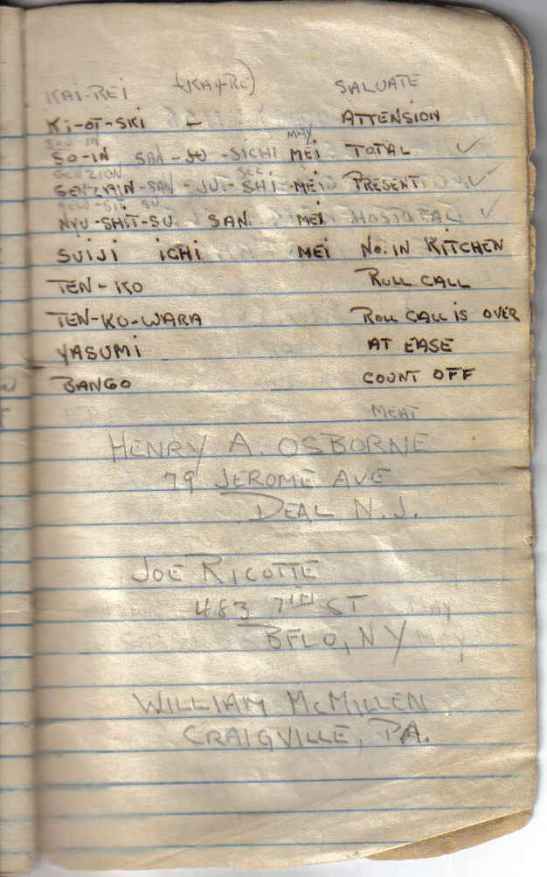 KAI-REI (KAY-RE) SALUATE
KI-OT-SKI – ATTENSION
MAY
SO-IN SAN-JU-SICHI MEI TOTAL ✓
GENZION SEE
GENZAIN-SAN-JUI-SHI-MEI PRESENT ✓
NYU-SHIT-SU SAN MEI HOSPITAL ✓
SUIJI ICHI MEI NO. IN KITCHEN
TEN-KO ROLL CALL
TEN-KO-WARA ROLL CALL IS OVER
YASUMI AT EASE
BANGO COUNT OFF
HENRY A. OSBORNE
79 JEROME AVE
DEAL N.J.
JOE RICOTTE
483 7TH ST
BFLO, NY
WILLIAM McMILLEN
CRAIGVILLE, PA.